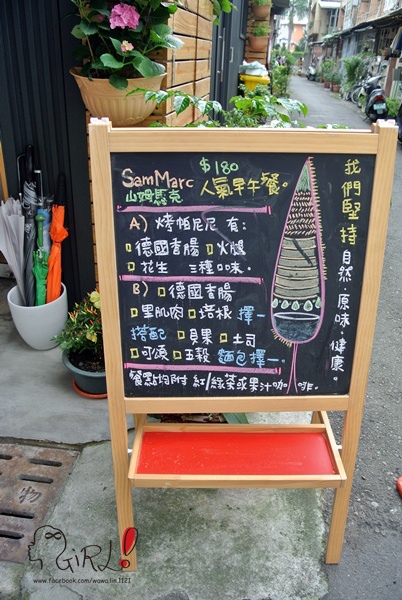 $180
SamMarc 人氣早午餐。
山姆馬克
A) 烤帕尼尼 有:
德國香腸 火腿
花生 三種口味.
B) 德國香腸
里肌肉 培根 擇一
搭配 貝果 土司
可頌 五穀 麵包擇一.
餐點均附 紅/綠茶或果汁咖啡.
我們堅持
自然.原味.健康.
物
GiRL!
www.facebook.com/wawa.lin.1121